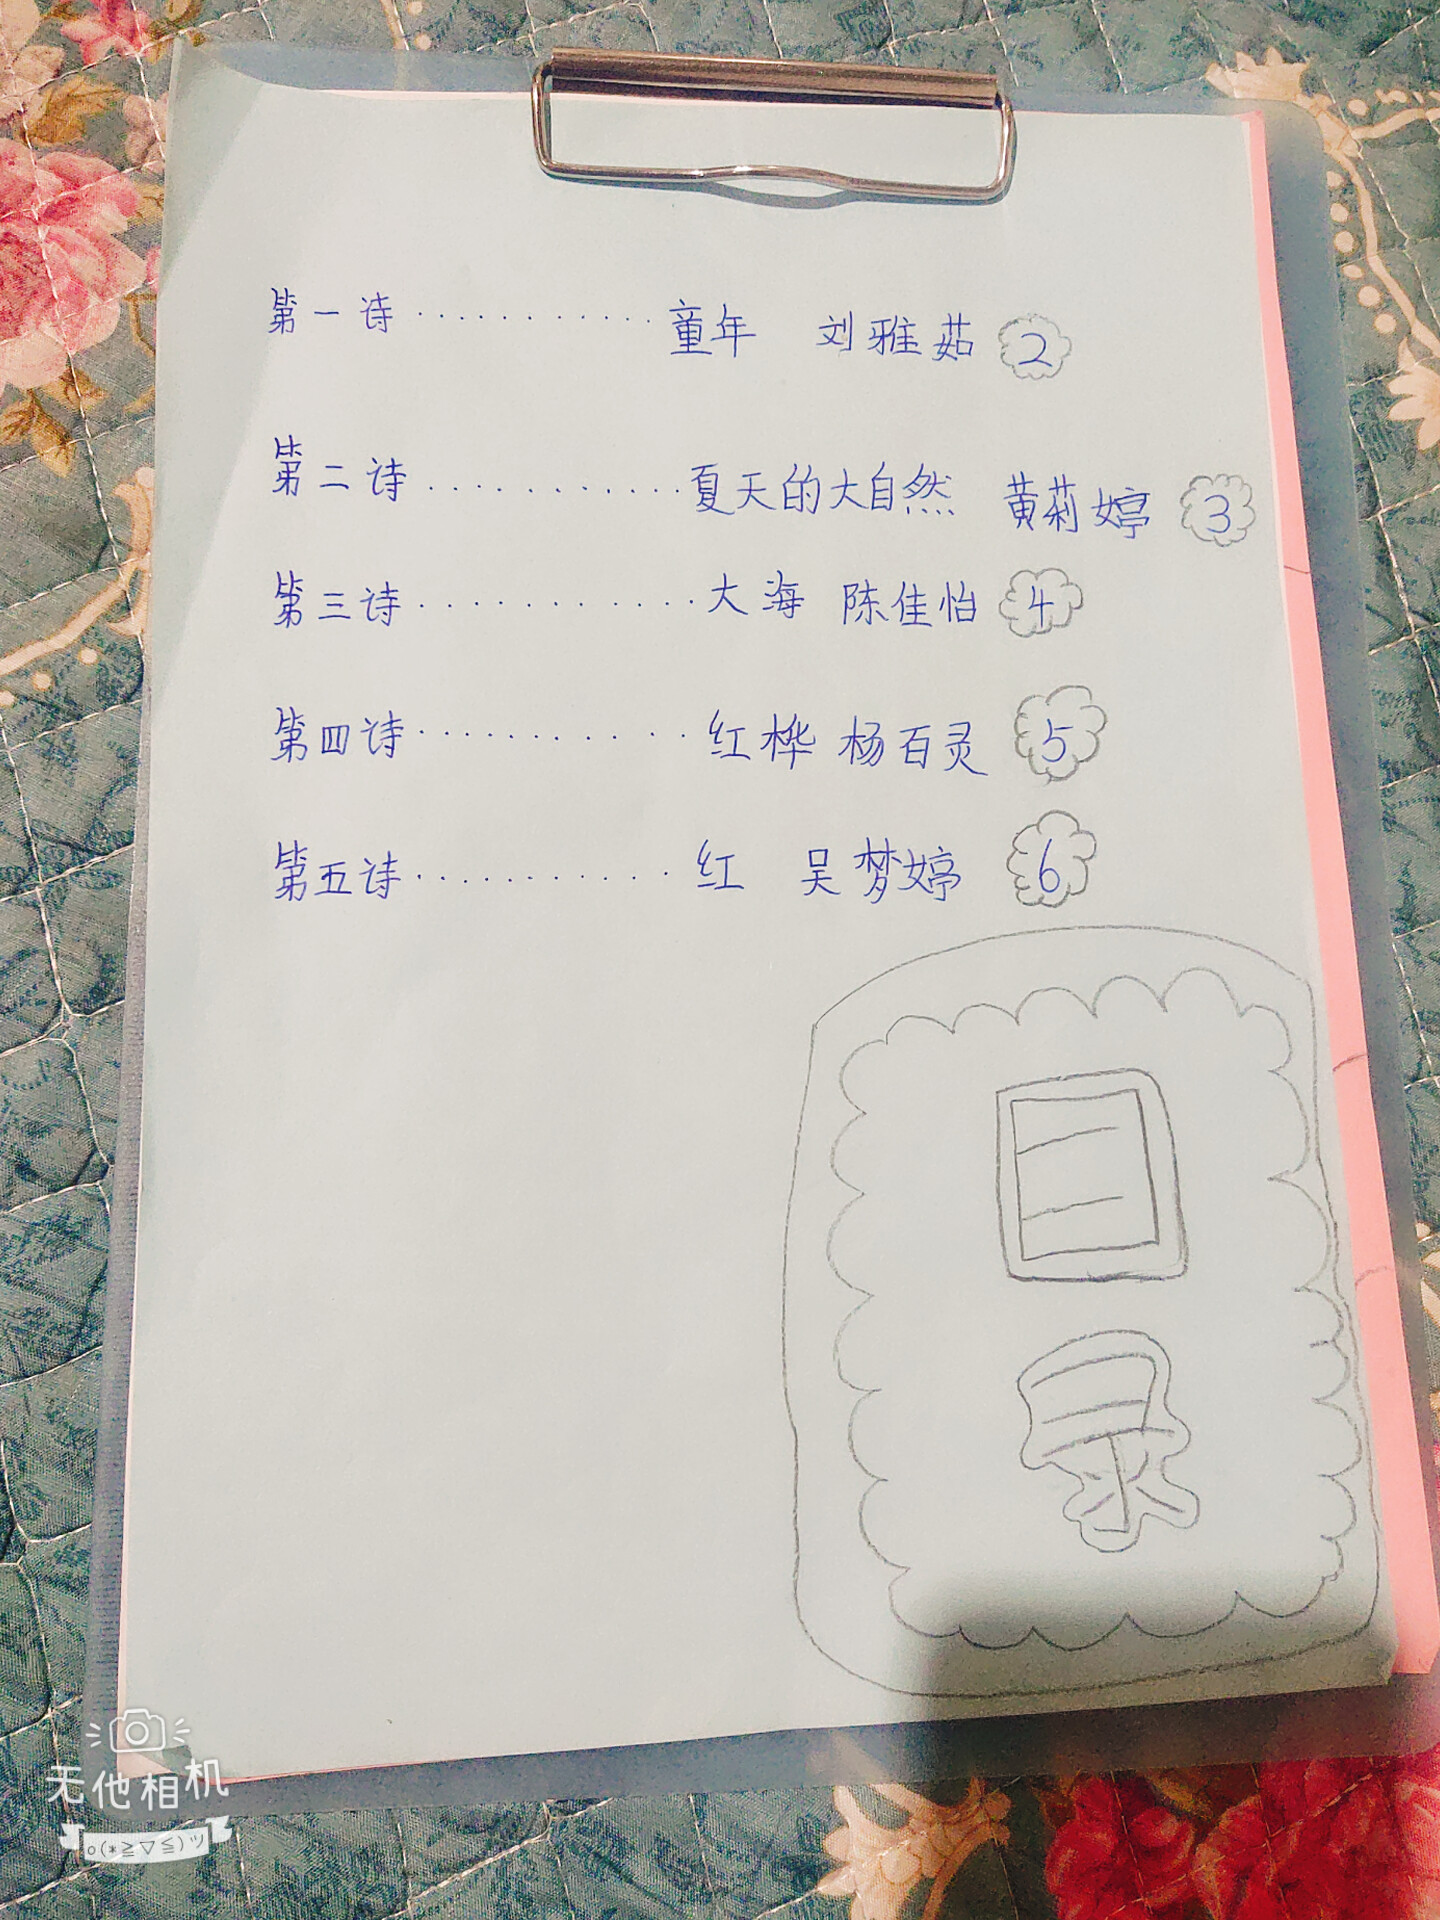 第一诗············童年 刘雅茹 2
第二诗············夏天的大自然 黄莉婷 3
第三诗············大海 陈佳怡 4
第四诗············红桦 杨百灵 5
第五诗············红 吴梦婷 6
目
录
无他相机
o(*≧▽≦)ツ